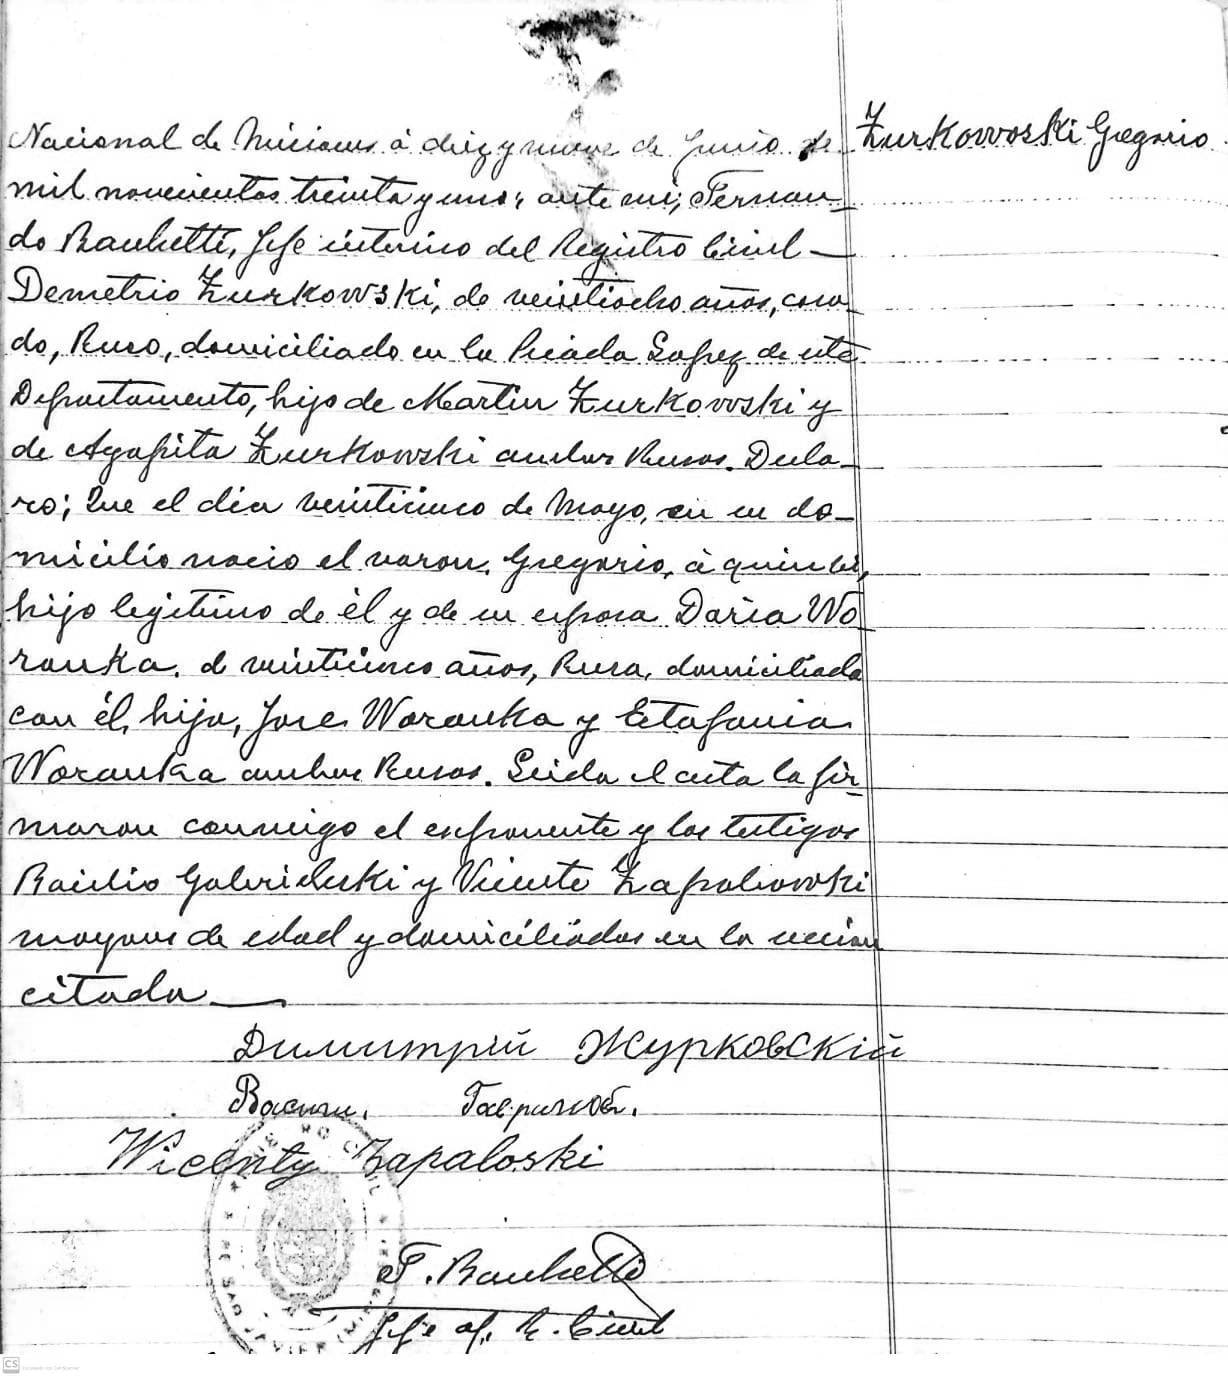 Nacional de Misiones á diez y nueve de Junio de
Zurkowoski Gregorio
mil novecientos treinta y uno, ante mi, Fernan-
do Bauhetti, Jefe interino del Registro Civil
Demetrio Zurkowski, de veintiocho años, casa-
do, Ruso, domiciliado en la Picada Lopez de este
Departamento, hijo de Martin Zurkowski y
de Agapita Zurkowski ambos Rusos. Decla-
ro; Que el dia veinticinco de Mayo, en su do-
micilio nacio el varon, Gregorio, á quien vi,
hijo legitimo de él y de su esposa Daria Wo
ronka. de veinticinco años, Rusa, domiciliada
con él, hija, Jose Woronka y Estafania
Woronka ambos Rusos. Leida el acta la fir-
maron conmigo el exponente y los testigos
Basilio y Vicente Zapalowski
mayores de edad y domiciliados en la seccion
citada
Димитрій Журковскій
Wicenty Zapaloski
F. Bauhetti
Jefe R. Civil